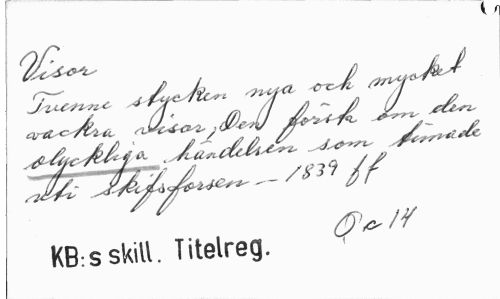 Visor
Tvenne stycken nya och mycket
vackra visor, Den första om den
olyckliga händelsen som timade
uti Skifsforsen — 1839 ff
Qc 14
KB:s skill. Titelreg.